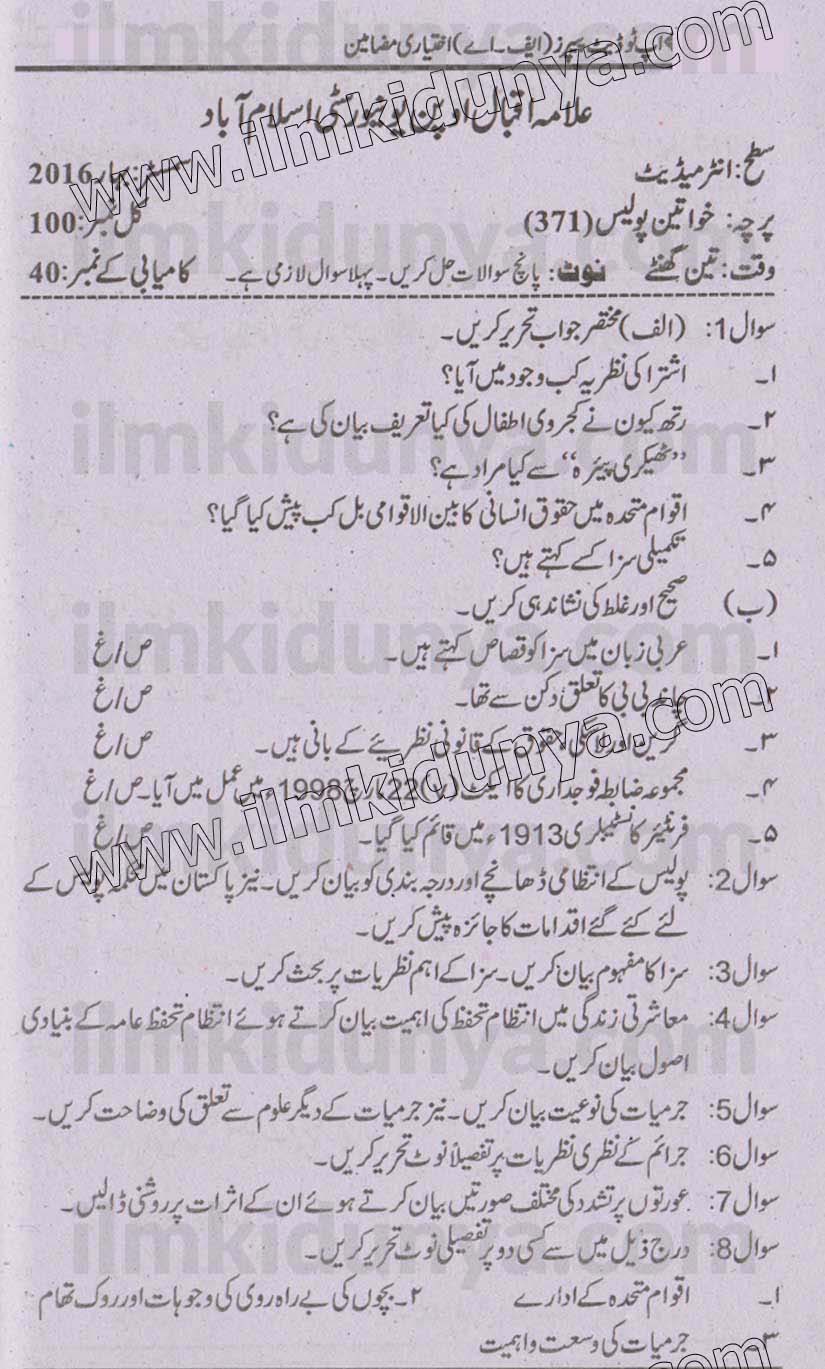 اپ ٹوڈیٹ پیپرز (ایف۔اے) اختیاری مضامین
علامہ اقبال اوپن یونیورسٹی اسلام آباد
سطح: انٹرمیڈیٹ سمسٹر: بہار 2016
پرچہ: خواتین پولیس (371) کل نمبر: 100
وقت: تین گھنٹے نوٹ: پانچ سوالات حل کریں۔ پہلا سوال لازمی ہے۔ کامیابی کے نمبر: 40
سوال 1: (الف) مختصر جواب تحریر کریں۔
۱۔ اشتراکی نظریہ کب وجود میں آیا؟
۲۔ رتھ کیون نے کجروی اطفال کی کیا تعریف بیان کی ہے؟
۳۔ ”ٹھیکری پیئرہ“ سے کیا مراد ہے؟
۴۔ اقوام متحدہ میں حقوق انسانی کا بین الاقوامی بل کب پیش کیا گیا؟
۵۔ تکمیلی سزا کسے کہتے ہیں؟
(ب) صحیح اور غلط کی نشاندہی کریں۔
۱۔ عربی زبان میں سزا کو قصاص کہتے ہیں۔ ص/غ
۲۔ چاند بی بی کا تعلق دکن سے تھا۔ ص/غ
۳۔ گرین اور لاسکی حقوق کے قانونی نظریئے کے بانی ہیں۔ ص/غ
۴۔ مجموعہ ضابطہ فوجداری کا ایکٹ 22 مارچ 1998ء میں عمل میں آیا۔ ص/غ
۵۔ فرنٹیئر کانسٹیبلری 1913ء میں قائم کیا گیا۔ ص/غ
سوال 2: پولیس کے انتظامی ڈھانچے اور درجہ بندی کو بیان کریں۔ نیز پاکستان میں محکمہ پولیس کے
لئے کئے گئے اقدامات کا جائزہ پیش کریں۔
سوال 3: سزا کا مفہوم بیان کریں۔ سزا کے اہم نظریات پر بحث کریں۔
سوال 4: معاشرتی زندگی میں انتظام تحفظ کی اہمیت بیان کرتے ہوئے انتظام تحفظ عامہ کے بنیادی
اصول بیان کریں۔
سوال 5: جرمیات کی نوعیت بیان کریں۔ نیز جرمیات کے دیگر علوم سے تعلق کی وضاحت کریں۔
سوال 6: جرائم کے نظری نظریات پر تفصیلاً نوٹ تحریر کریں۔
سوال 7: عورتوں پر تشدد کی مختلف صورتیں بیان کرتے ہوئے ان کے اثرات پر روشنی ڈالیں۔
سوال 8: درج ذیل میں سے کسی دو پر تفصیلی نوٹ تحریر کریں۔
۱۔ اقوام متحدہ کے ادارے ۲۔ بچوں کی بے راہ روی کی وجوہات اور روک تھام
۳۔ جرمیات کی وسعت و اہمیت
www.ilmkidunya.com
www.ilmkidunya.com
ilmkidunya.com
ilmkidunya.com
ilmkidunya.com
ilmkidunya.com
ilmkidunya.com
ilmkidunya.com